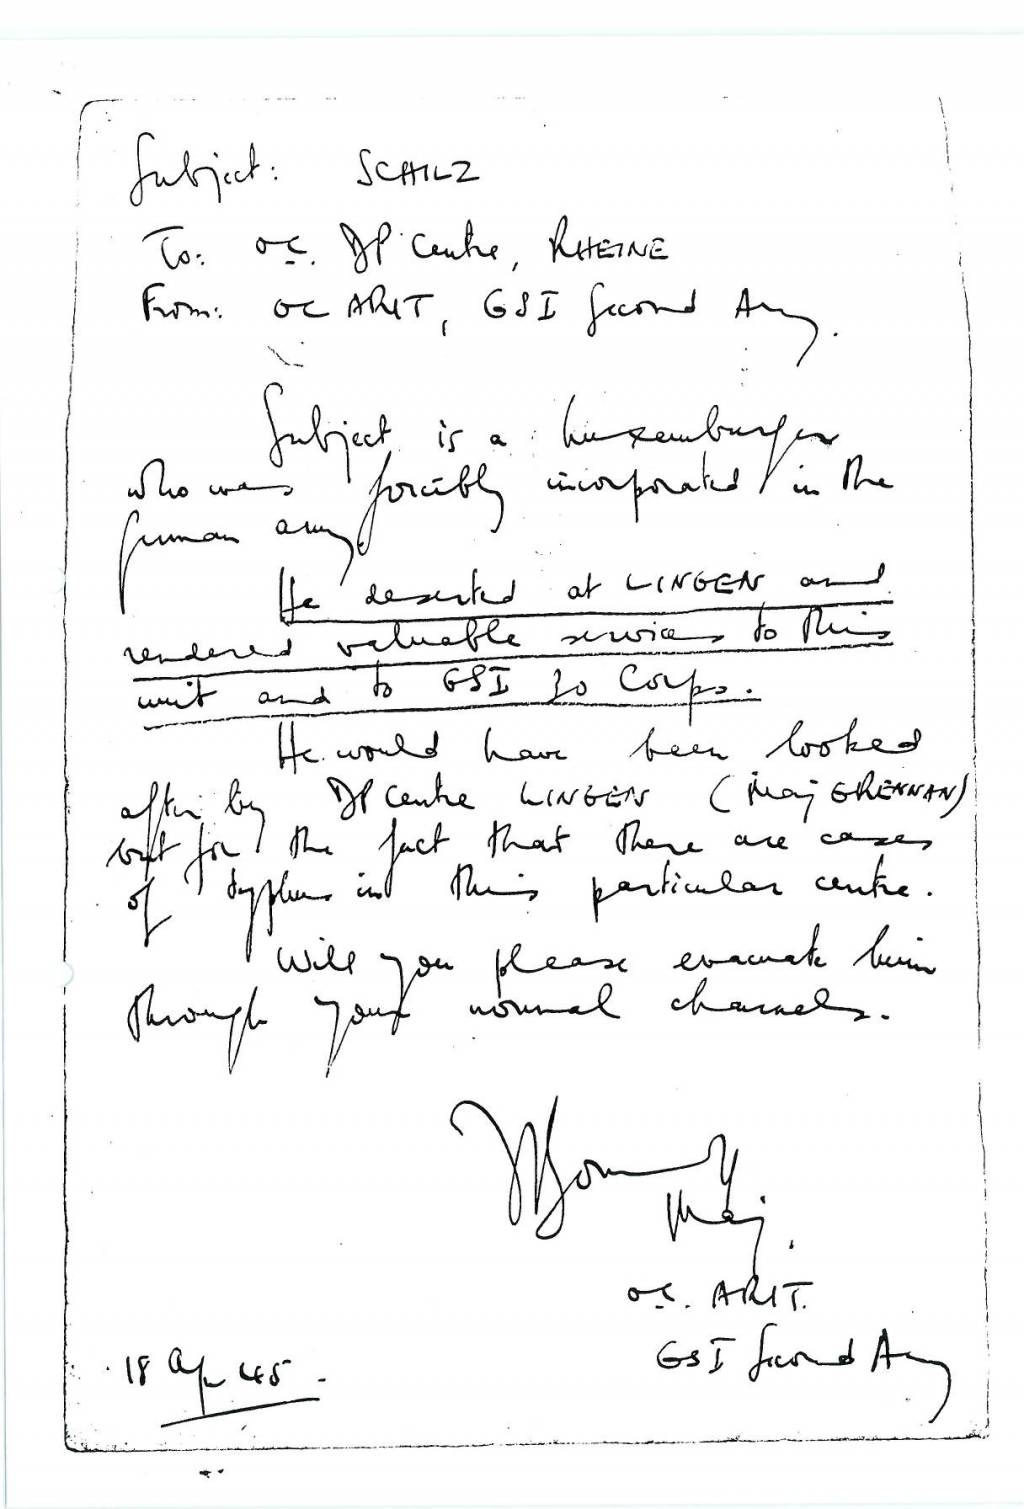 Subject: SCHILZ
To: O.C. DP Centre, RHEINE
From: OC ARIT, GSI Second Army.
Subject is a Luxemburger
who was forcibly incorporated in the
german army.
He deserted at LINGEN and
rendered valuable services to this
unit and to GSI 30 Corps.
He would have been looked
after by DP Centre LINGEN (Maj GRENNAN)
but for the fact that there are cases
of typhus in this particular centre.
Will you please evacuate him
through your normal channels.
Maj.
O.C. ARIT.
GSI Second Army
18 Apr 45.